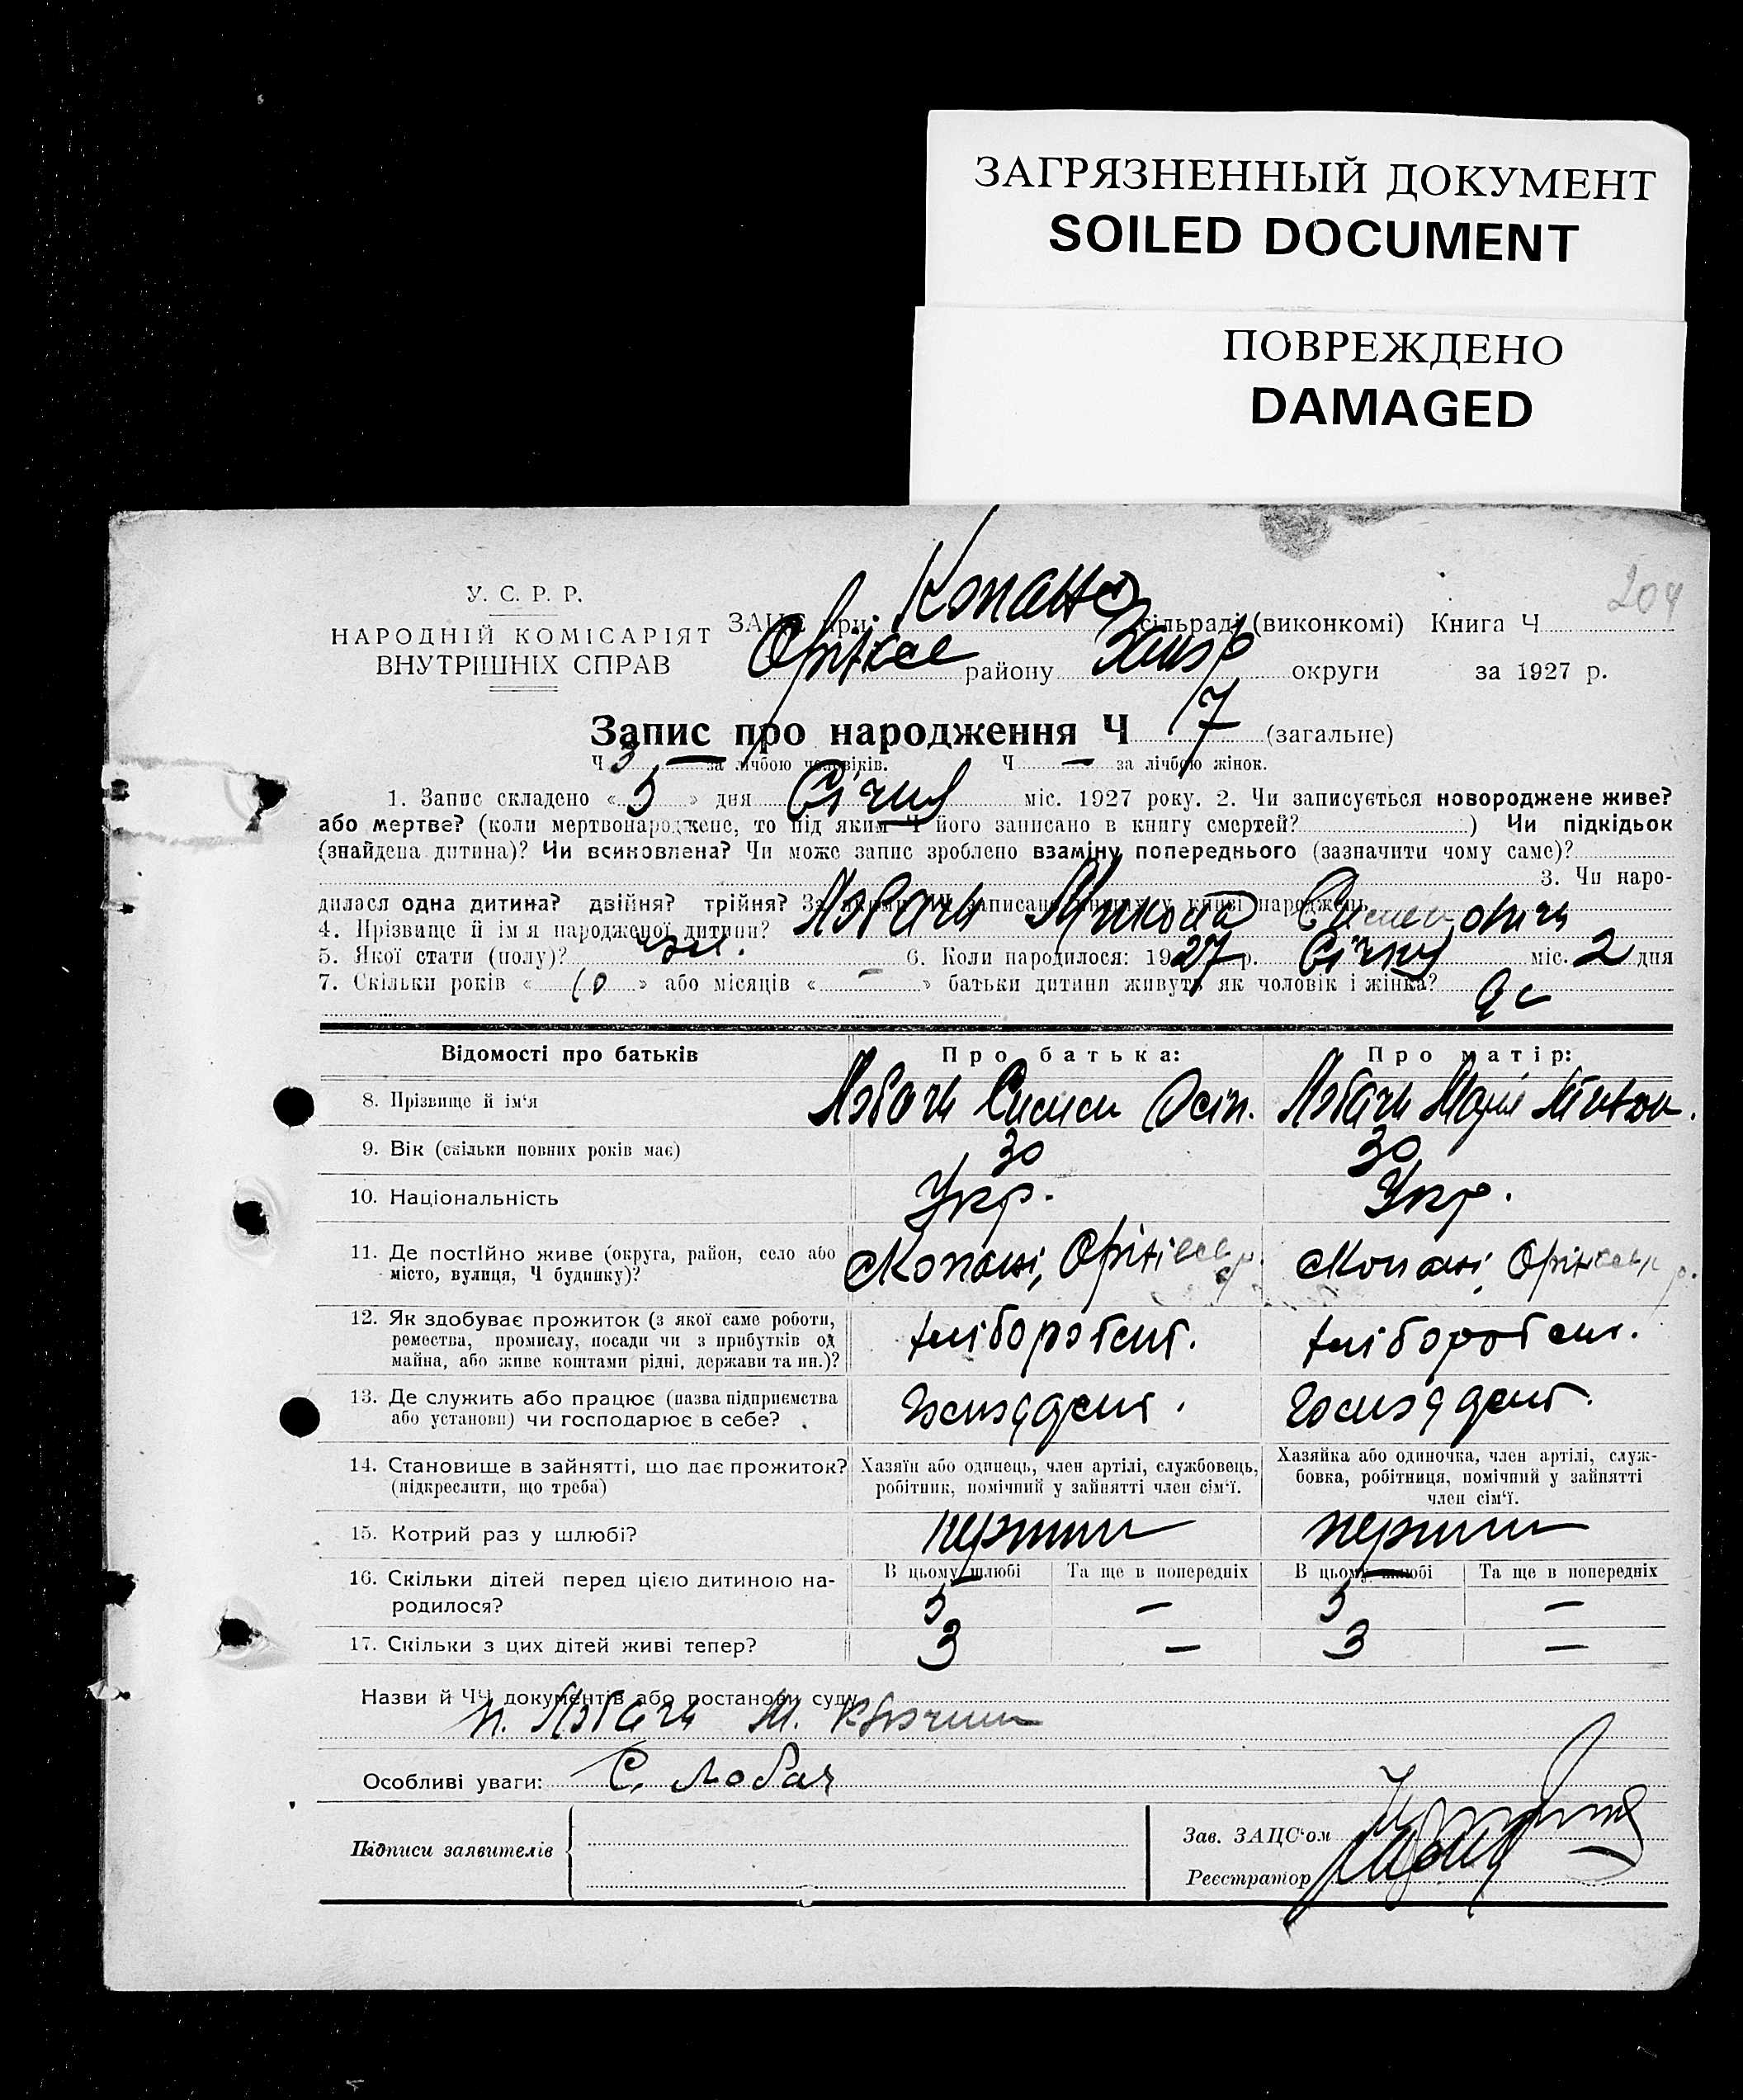 ЗАГРЯЗНЕННЫЙ ДОКУМЕНТ
SOILED DOCUMENT
ПОВРЕЖДЕНО
DAMAGED
204
У. С. Р. Р.
НАРОДНІЙ КОМІСАРІЯТ
ВНУТРІШНІХ СПРАВ
ЗАЦС при сільраді (виконкомі) Книга Ч
району округи за 1927 р.
Запис про народження Ч 7 (загальне)
Ч 3 за лічбою чоловіків. Ч — за лічбою жінок.
1. Запис складено « 5 » дня Січня міс. 1927 року. 2. Чи записується новороджене живе?
або мертве? (коли мертвонароджене, то під яким Ч його записано в книгу смертей? ) Чи підкідьок
(знайдена дитина)? Чи всиновлена? Чи може запис зроблено взаміну попереднього (зазначити чому саме)?
3. Чи наро-
дилася одна дитина? двійня? трійня? За якими ЧЧ записано інших у книзі народжень
4. Прізвище й ім'я народженої дитини? Лобач Микола
5. Якої стати (полу)? чол. 6. Коли народилося: 1927 р. Січня міс. 2 дня
7. Скільки років « 10 » або місяців « — » батьки дитини живуть як чоловік і жінка?
Відомості про батьків Про батька: Про матір:
8. Прізвище й ім'я Лобач Осип. Лобач Марія
9. Вік (скільки повних років має) 30 30
10. Національність Укр. Укр.
11. Де постійно живе (округа, район, село або
місто, вулиця, Ч будинку)? Копані, Копані,
12. Як здобуває прожиток (з якої саме роботи,
ремества, промислу, посади чи з прибутків од
майна, або живе коштами рідні, держави та ин.)?
хлібороб хлібороб
13. Де служить або працює (назва підприємства
або установи) чи господарює в себе?
14. Становище в зайнятті, що дає прожиток?
(підкреслити, що треба)
Хазяїн або одинець, член артілі, службовець,
робітник, помічний у зайнятті член сім'ї.
Хазяйка або одиночка, член артілі, служ-
бовка, робітниця, помічний у зайнятті
член сім'ї.
15. Котрий раз у шлюбі? перший перший
16. Скільки дітей перед цією дитиною на-
родилося?
В цьому шлюбі Та ще в попередніх В цьому шлюбі Та ще в попередніх
5 — 5 —
17. Скільки з цих дітей живі тепер? 3 — 3 —
Назви й ЧЧ документів або постанови суду
п. Лобач М.
Особливі уваги: С. Лобач
Підписи заявителів
Зав. ЗАЦС'ом
Реєстратор